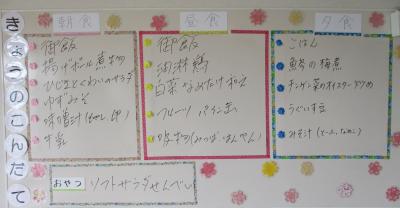 きょうのこんだて
朝食
御飯
揚げボール煮物
ひじきとくわいのサラダ
ゆずみそ
味噌汁
牛乳
昼食
御飯
油淋鶏
白菜なめたけ和え
フルーツ パイン缶
吸物(みつば・はんぺん)
夕食
ごはん
鯵の梅煮
チンゲン菜のオイスターソテー
うぐいす豆
みそ汁
おやつ
ソフトサラダせんべい